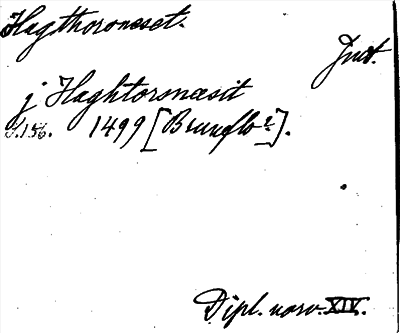 Hagthorneset.
Jmt.
j Haghtorsnæsit
S. 156. 1499 [Brunflo?].
Dipl. norv. XIV.